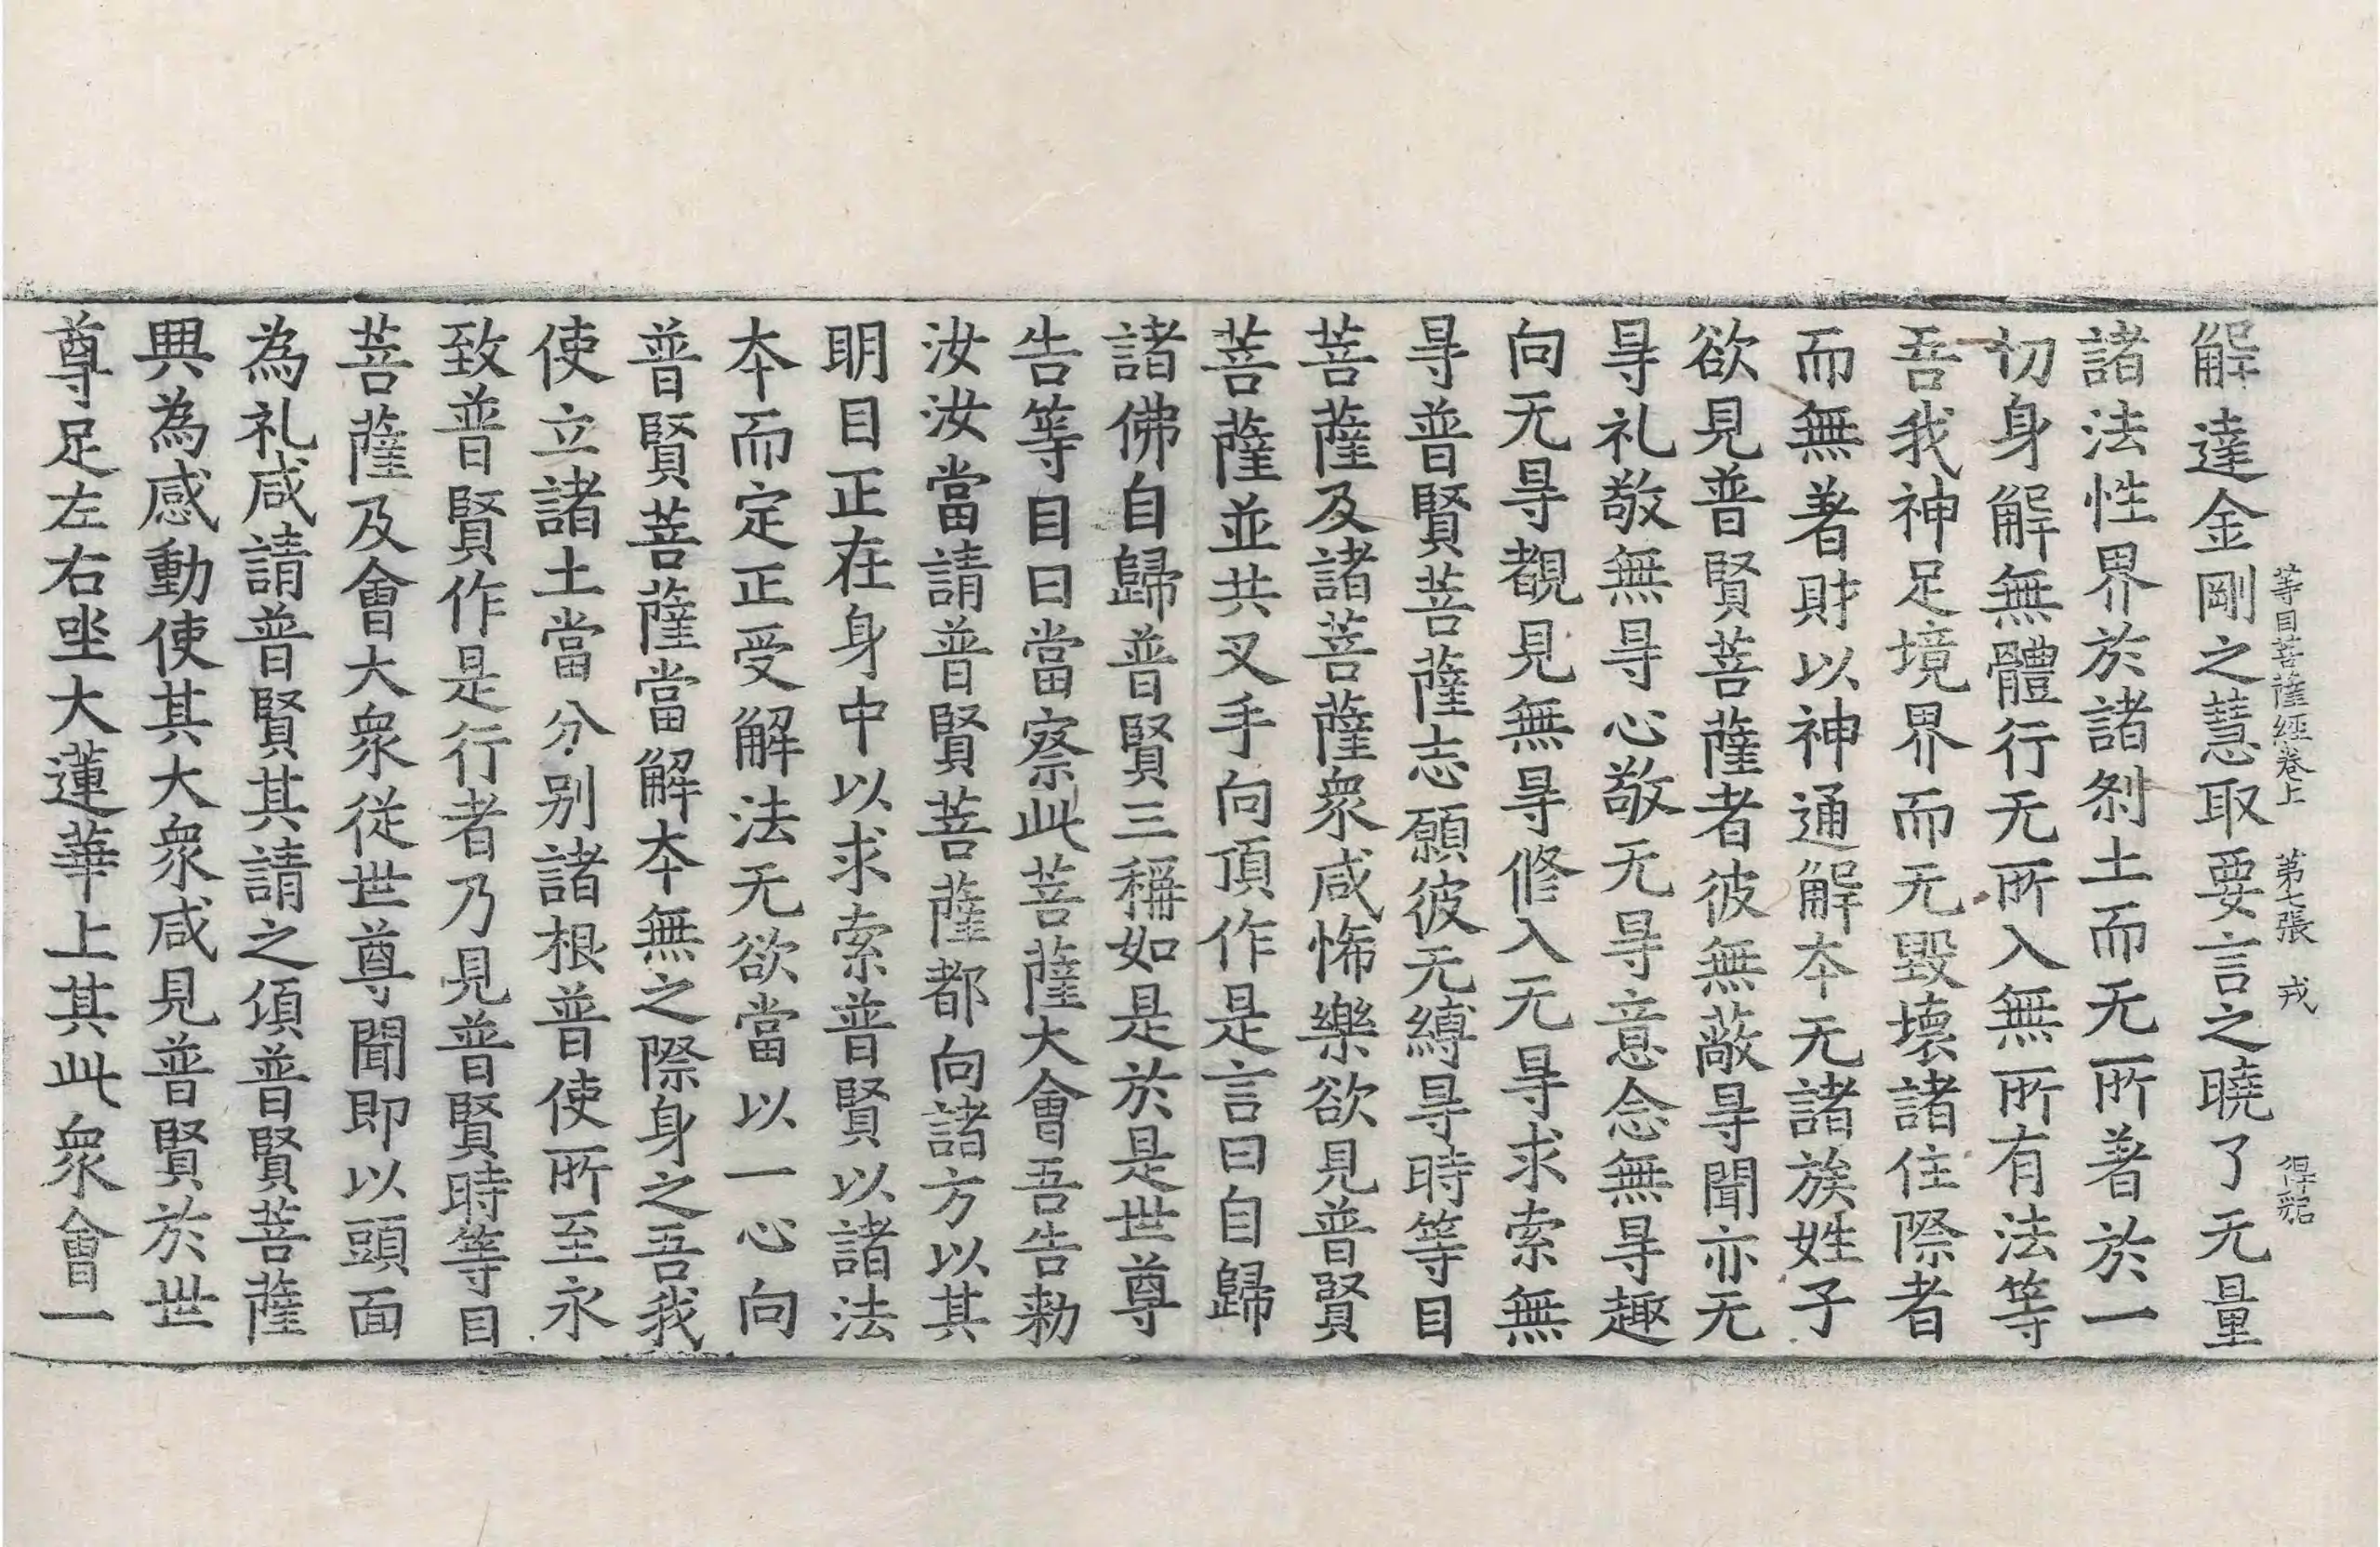 等目菩薩經卷上　第七張　戎
解達金剛之慧取要言之曉了无量
諸法性界於諸刹土而无所著於一
切身解無體行无所入無所有法等
吾我神足境界而无毀壞諸住際者
而無著財以神通解本无諸族姓子
欲見普賢菩薩者彼無蔽㝵聞亦无
㝵礼敬無㝵心敬无㝵意念無㝵趣
向无㝵覩見無㝵修入无㝵求索無
㝵普賢菩薩志願彼无縛㝵時等目
菩薩及諸菩薩衆咸悕樂欲見普賢
菩薩並共叉手向頂作是言曰自歸
諸佛自歸普賢三稱如是於是世尊
告等目曰當察此菩薩大會吾告勑
汝汝當請普賢菩薩都向諸方以其
明目正在身中以求索普賢以諸法
本而定正受解法无欲當以一心向
普賢菩薩當解本無之際身之吾我
使立諸土當分別諸根普使所至永
致普賢作是行者乃見普賢時等目
菩薩及會大衆從世尊聞即以頭面
為礼咸請普賢其請之頃普賢菩薩
興為感動使其大衆咸見普賢於世
尊足左右坐大蓮華上其此衆會一